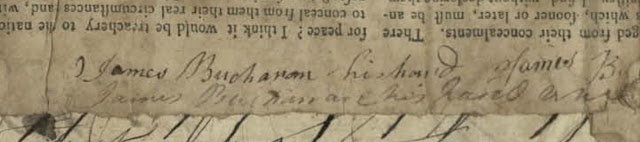 ged from their concealments. There
which, sooner or later, must be an-
for peace? I think it would be treachery to the natio
to conceal from them their real circumstances and, wi
James Buchanan his hand James B
James Buchanan his hand